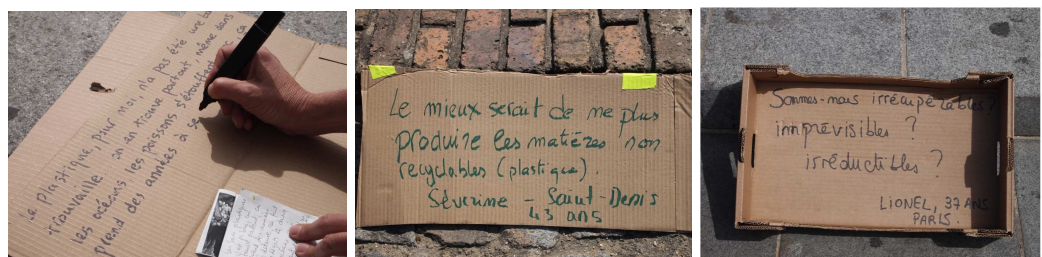 Le plastique, pour moi, n'a pas été une b
trouvaille on en trouve partout, même dans
les océans les poissons s'étouffent ça
prend des années à se
Le mieux serait de ne plus
produire les matières non
recyclables (plastique).
Séverine - Saint-Denis
43 ans
Sommes-nous irrécupérables?
imprévisibles ?
irréductibles ?
LIONEL, 37 ANS
PARIS.